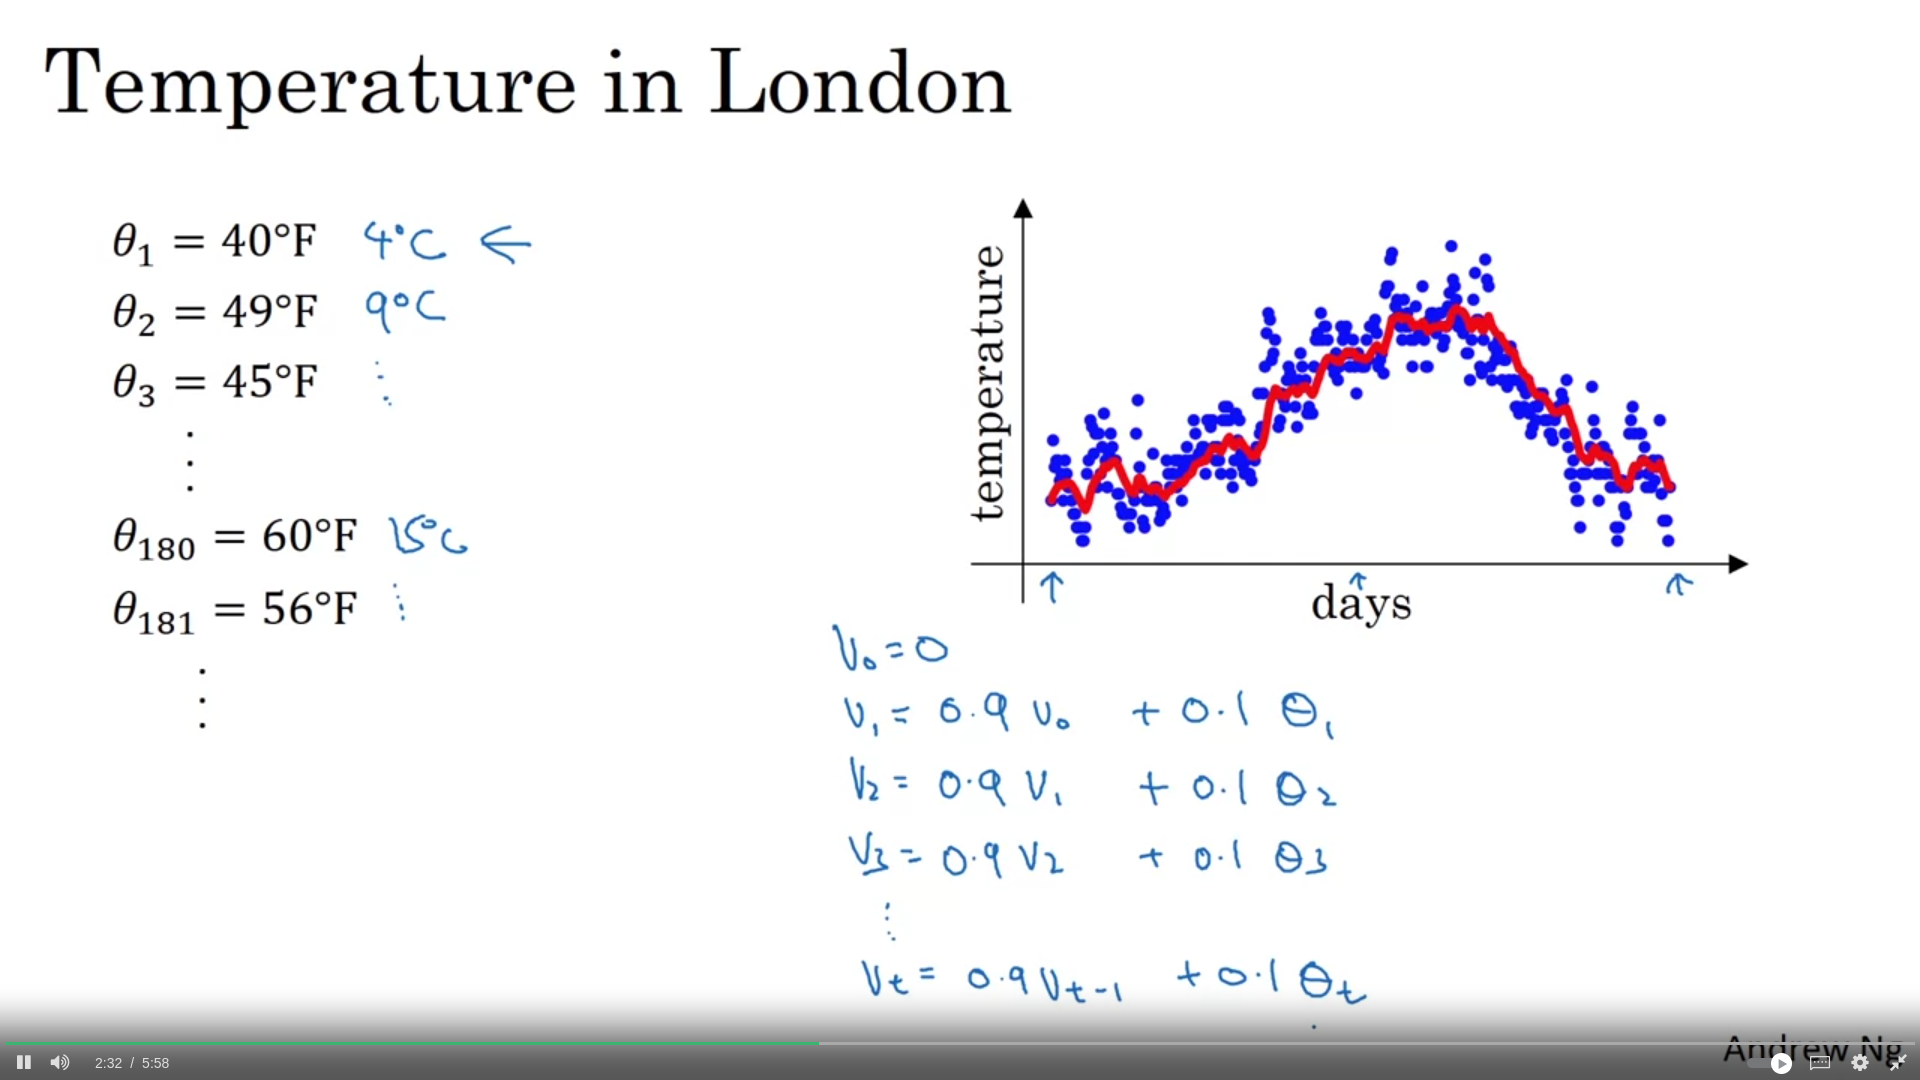 Temperature in London
θ₁ = 40°F 4°C ←
θ₂ = 49°F 9°C
θ₃ = 45°F ⋱
⋮
θ₁₈₀ = 60°F 15°C
θ₁₈₁ = 56°F ⋮
⋮
temperature
days
V₀ = 0
V₁ = 0.9 V₀ + 0.1 θ₁
V₂ = 0.9 V₁ + 0.1 θ₂
V₃ = 0.9 V₂ + 0.1 θ₃
⋮
Vₜ = 0.9 Vₜ₋₁ + 0.1 θₜ
Andrew Ng
2:32 / 5:58